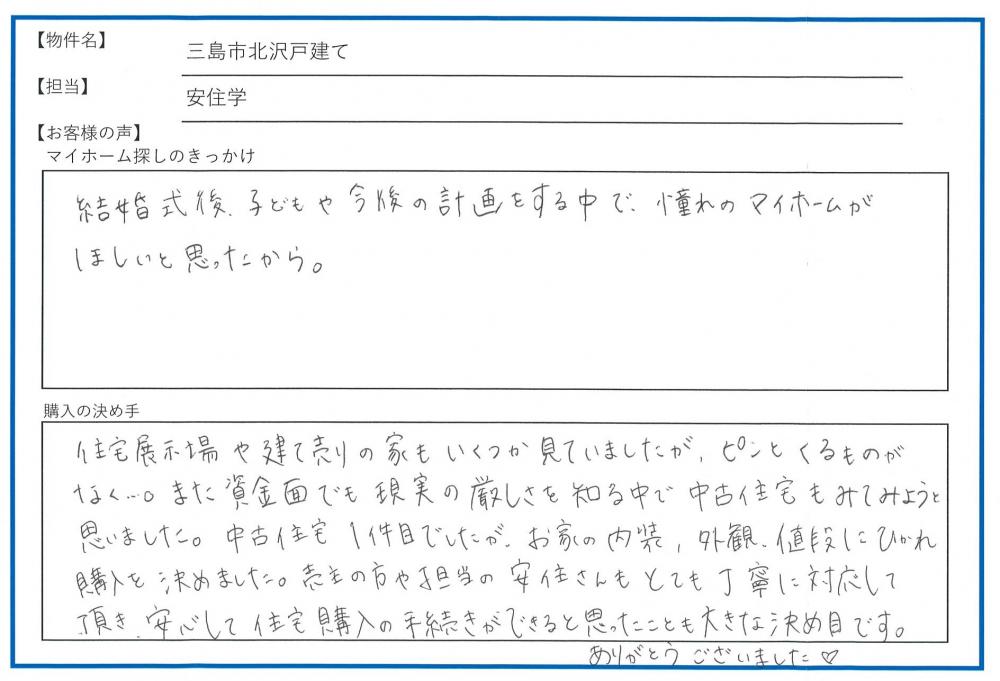 【物件名】
三島市北沢戸建て
【担当】
安住学
【お客様の声】
マイホーム探しのきっかけ
結婚式後、子どもや今後の計画をする中で、憧れのマイホームが
ほしいと思ったから。
購入の決め手
住宅展示場や建て売りの家もいくつか見ていましたが、ピンとくるものが
なく…。また資金面でも現実の厳しさを知る中で中古住宅もみてみようと
思いました。中古住宅1件目でしたが、お家の内装、外観、値段にひかれ
購入を決めました。売主の方や担当の安住さんもとても丁寧に対応して
頂き、安心して住宅購入の手続きができると思ったことも大きな決め目です。
ありがとうございました♡